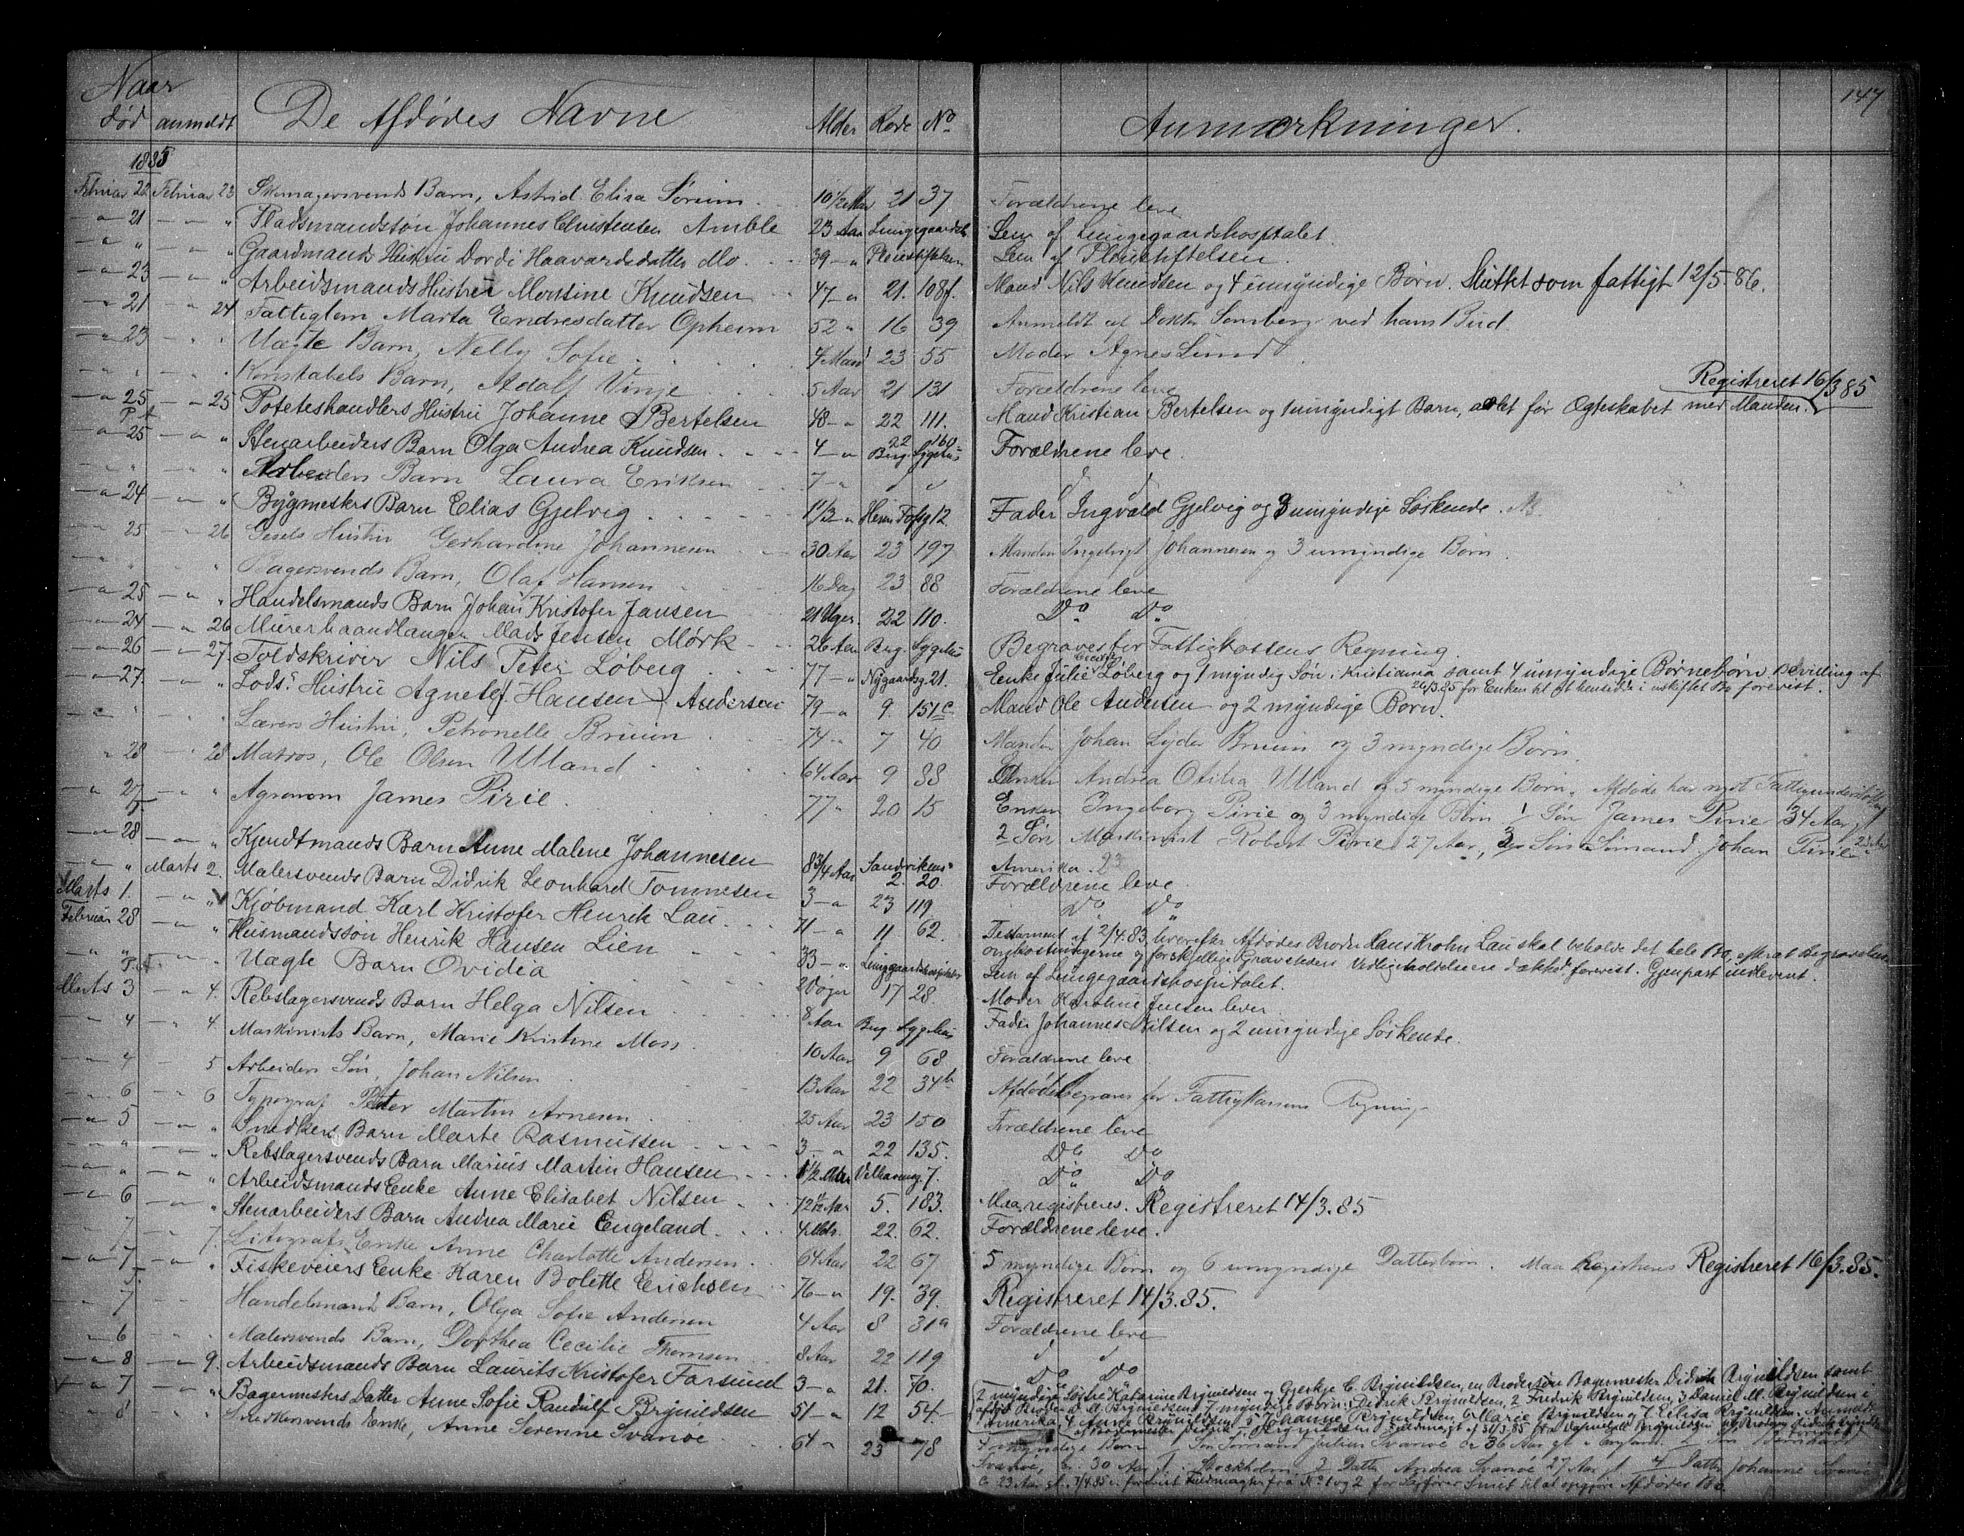 147
Naar
død anmeldt De Afdødes Navne Alder Rode No Anmærkninger.
1885
Februar 22 Februar 23 Skomagersvends Barn, Astrid Elisa Sørum 10 1/2 Mdr 21 37 Forældrene leve
21 " Pladsmandssøn Johannes Christensen Amble 23 Aar Lungegaardsh. Lem af Lungegaardshospitalet.
" " Gaardmands Hustru Dordi Haavardsdatter Mo 39 " Pleiestiftelsen Lem af Pleiestiftelsen.
23 " Arbeidsmands Hustru Martine Knudsen 47 " 21. 108f. Mand Nils Knudsen og 4 umyndige Børn. Sluttet som fattigt 12/5.86.
21 24 Fattiglem Marta Endresdatter Opheim 52 " 16 39 Anmeldt af Doktor ved hans Bud
23 " Uægte Barn, Nelly Sofie 4 Maan 23 55 Moder Agnes Lund
" " Konstabels Barn, Adolf Vinje 5 Aar 21 131 Forældrene leve
Registreret 16/3 85
25 25 Poteteshandlers Hustru Johanne Bertelsen 48 " 22 111. Mand Kristian Bertelsen og 1 umyndigt Barn, avlet før Ægteskabet med Manden.
25 " Stenarbeiders Barn Olga Andrea Knudsen 4 " 22 160 Berg. Sygehus Forældrene leve.
" " Arbeiders Barn Laura Eriksen 7 " " " d d
24 " Bygmesters Barn Elias Gjelvig 11/2 " 12 Fader Ingvald Gjelvig og 3 umyndige Søskende.
25 26 Hustru Gerhardine Johannesen 30 Aar 23 197 Manden Johannesen og 3 umyndige Børn.
" " Bagersvends Barn, Olaf Hansen 16 Dag 23 88 Forældrene leve
25 " Handelsmands Barn Johan Kristofer Jansen 21 Uger. 22 110. Do Do
24 26 Murerhaandlanger Mads Jensen Mørk 26 Aar Berg. Sygehus Begraves for Fattigkassens Regning.
26 27. Toldskriver Nils Peter Løberg 77 " Nygaardsg 21. Enke Julie Løberg og 1 myndig Søn, Kristiania samt 4 umyndige Børnebørn. Bevilling af
26/3.85 for Enken til at hensidde i uskiftet Bo forevist.
27. " Lods Hustru Agnete J. Hansen, Andersen 79 " 9. 151c Mand Ole Andersen og 2 myndige Børn.
" " Lærers Hustru, Petronelle Bruun 74 " 7 40 Manden Johan Lyder Bruun og 3 myndige Børn.
28 28 Matros, Ole Olsen Ulland 64 Aar 9 88 Enken Andrea Otilia Ulland og 5 myndige Børn. Afdøde har nydt Fattigunderstøttelse
27 " Agronom James Pirie 77 " 20 15 Enken Ingeborg Pirie og 3 myndige Børn 1 Søn James Pirie 34 Aar,
2 Søn Maskinist Robert Pirie 27 Aar, 3 Søn Sømand Johan Pirie
Amerika. 23
28 " Kjendtmands Barn Anne Malene Johannesen 8 3/4 Aar Sandvikens 2. 20. Forældrene leve.
" Marts 2. Malersvends Barn Didrik Leonhard Tommesen 3 " 23 119 Do Do
Marts 1. " Kjøbmand Karl Kristofer Henrik Lau 71 " 11 62. Testament af 2/4.83, hvorefter Afdødes Broder Hans Krohn Lau skal beholde det hele Bo, efterat Begravelses
omkostningerne og forskjellige Gravsteders Vedligeholdelse er dækket forevist. Gjenpart indleveret.
Februar 28 " Husmandssøn Henrik Hansen Lien 33 " Lungegaardshospitalet Lem af Lungegaardshospitalet.
" " Uægte Barn Ovidia 2 Døger 17 28. Moder Karoline Jensen lever
Marts 3 4. Rebslagersvends Barn Helga Nilsen 8 Aar Berg. Sygehus Fader Johannes Nilsen og 2 umyndige Søskende.
4 4 Maskinists Barn, Marie Kristine Moss 10 Aar 9 68 Forældrene leve
4 5 Arbeiders Søn, Johan Nilsen 13 Aar 22 34b Afdøde begraves for Fattigkassens Regning
6 6 Typograf Peter Martin Arnesen 25 Aar 23 150 Forældrene leve
5 " Snedkers Barn Marte Rasmussen 3 " 22 135. Do Do
" " Rebslagersvends Barn Marius Martin Hansen 1 1/2 Aar 7. Do Do
" " Arbeidsmands Enke Anne Elisabet Nilsen 72 1/2 Aar 5. 183. Maa registreres. Registreret 14/3.85
6 " Stenarbeiders Barn Andrea Marie Engeland 4 Mdr. 22. 62. Forældrene leve.
7 7. Litografs Enke Anne Charlotte Andersen 64 Aar 22 67 5 myndige Børn og 6 umyndige Datterbørn. Maa Registreres Registreret 16/3.85.
7 " Fiskeveiers Enke Karen Bolette Erichsen 76 " 19. 39. Registreret 14/3.85.
7 " Handelsmands Barn, Olga Sofie Andersen 4 Aar 8 31a Forældrene leve
6 " Malersvends Barn, Dorthea Cecilie Thomsen 8 Aar 22 119 d d
8 9. Arbeidsmands Barn Laurits Kristofer Farsund 3 " 21. 70. Do Do
7 " Bagermesters Datter Anne Sofie Randulf Brynildsen 51 " 12 54 2 myndige Søstre Katarine Brynildsen og Gjertje C. Brynildsen, en Brodersøn Bagermester Didrik Brynildsen samt
afdøde Broder Brynildsens 7 myndige Børn: 1 Didrik Brynildsen, 2 Fredrik Brynildsen, 3 Daniel M. Brynildsen i
Amerika, 4 Anne Brynildsen, 5 Johanne Brynildsen, 6 Marie Brynildsen og 7 Elisa Brynildsen. Anmeldt
af Bagermester Didrik Brynildsen
8 " Snedkersvends Enke, Anne Serenne Svanøe 64 " 23 78 4 myndige Børn 1 Søn Sømand Julius Svanøe 36 Aar 2 Søn
Svanøe, 30 Aar Stockholm. 3 Datter Andrea Svanøe 27 Aar 4 Datter Johanne Svanøe
23 Aar 7/4.85 forevist Fuldmagter fra No 1 og 2 for Sagfører Smit til at opgjøre Afdødes Bo